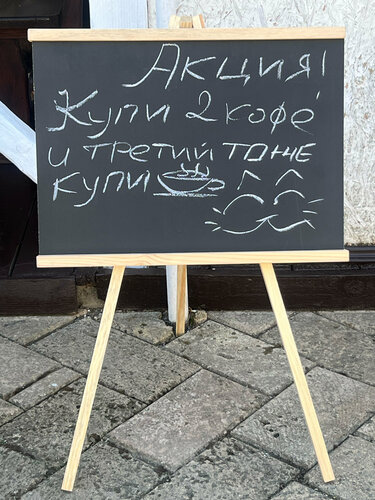 Акция!
Купи 2 кофе
и третий тоже
купи